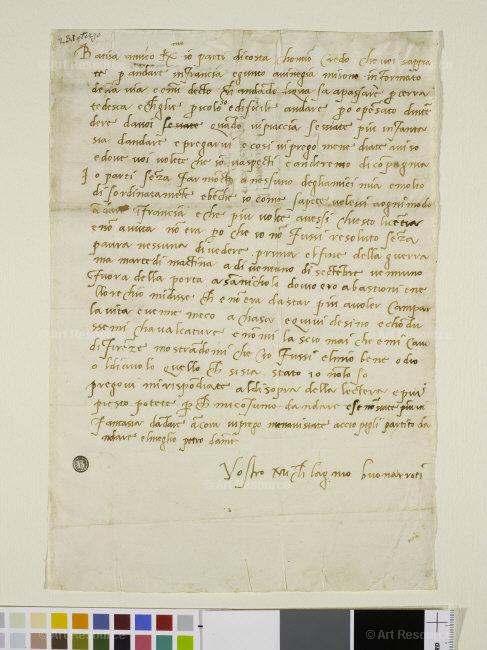 25 settembre
Batista amico Kx.mo io parti di costa chomio credo che voi sappia
te p andare infrancia egunto avinegia misono informato
della via e emi decto ch andādo diqua sa apassare p terra
tedesca e chegliè pericoloso edificile andare po opensato dintē
dere davoi se siate quādo vipiaccia se siate piu infanta
sia dandare e pregarvi e cosi viprego mene diate aviso
e dove voi volete che io vaspecti e anderemo di cōpagnia
I o parti sēza far motto a nessuno degliamici mia emolto
disordinatamēte ebēche io come sapete volessi aogni modo
ādare ī frācia e che piu volte avessi chiesto licētia
e nō avuta nō era po che io nō fussi resoluto sēza
paura nessuna di vedere prima elfine della guerra
ma martedi mactina a di ventuno di sectēbre vē n uno
fuora della porta a sā nicholo dovio ero abastioni enel
lorechio midisse ch enō era dastar piu avoler campar
la vita evene meco a chasa equivi desino echōdu
ssemi chavalcature enō mi lascio mai che e mi cavo
di firēze mostrādomi che cio fussi elmio bene o dio
o ldiavolo quello ch sisia stato io nōlo so
pregovi mirispōdiate aldisopra della lectera epiu
presto potete pch micōsumo dandare e se nō siate piu ī
fantasia dādare ācora viprego menavisiate accio pigli partito da
ndare elmeglio potro dame
Vostro Michelagnio buonarroti